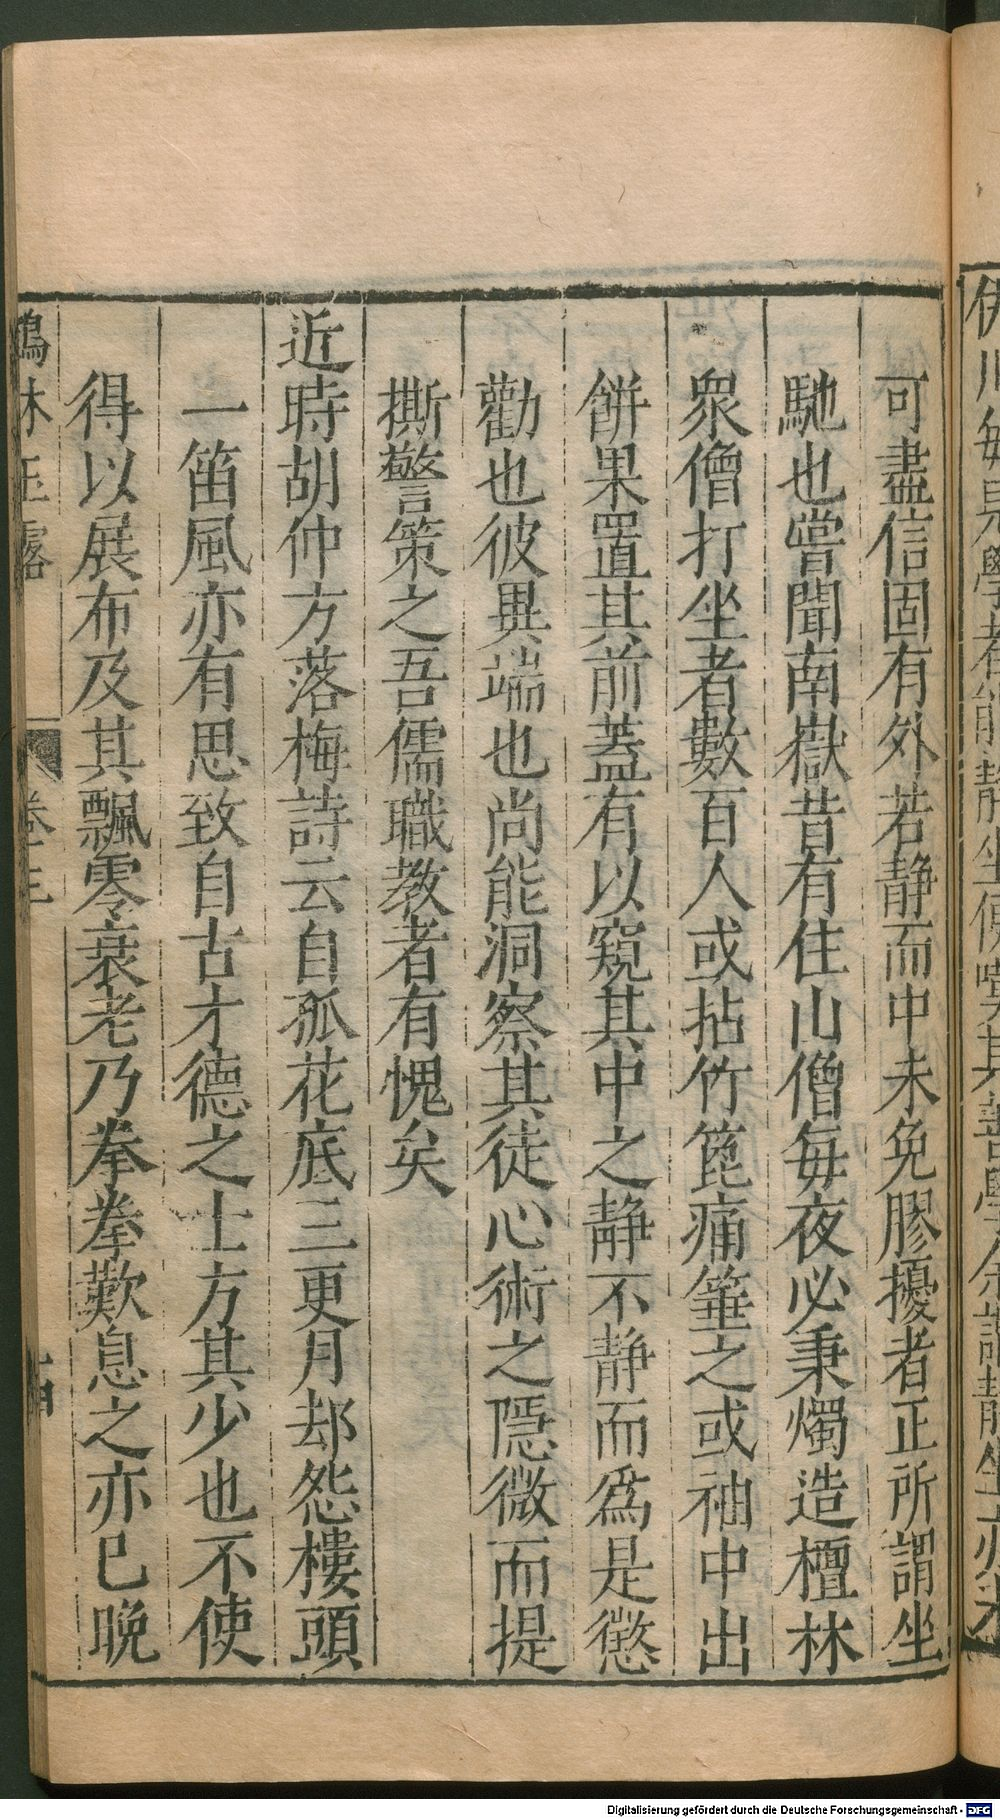 伊川每見學者能靜坐便嘆其善學余謂靜坐亦未
可盡信固有外若靜而中未免膠擾者正所謂坐
馳也嘗聞南嶽昔有住山僧每夜必秉燭造檀林
眾僧打坐者數百人或拈竹篦痛箠之或袖中出
餅果置其前蓋有以窺其中之靜不靜而為是懲
勸也彼異端也尚能洞察其徒心術之隱微而提
撕警策之吾儒職教者有愧矣
近時胡仲方落梅詩云自孤花底三更月却怨樓頭
一笛風亦有思致自古才德之士方其少也不使
得以展布及其飄零衰老乃拳拳歎息之亦已晚
鶴林玉露
卷三
十四
Digitalisierung gefördert durch die Deutsche Forschungsgemeinschaft - DFG